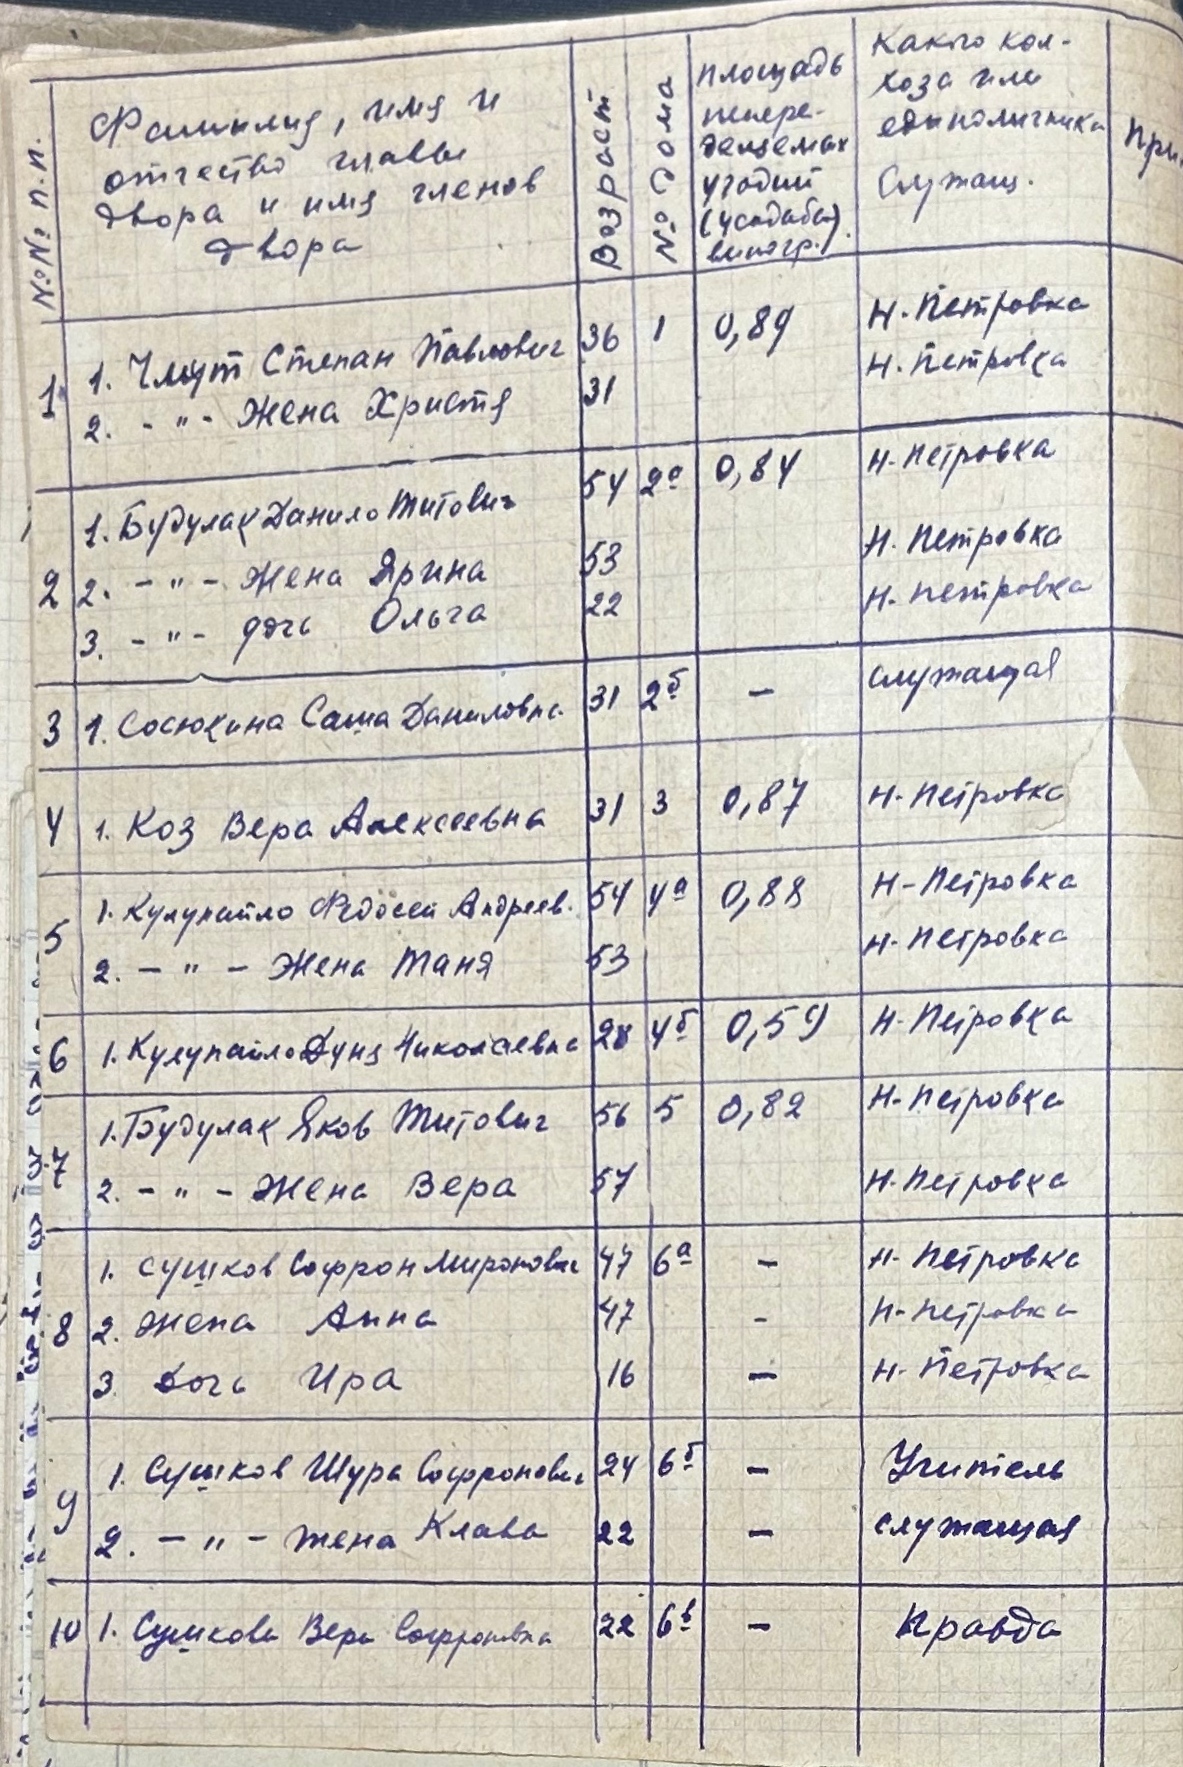 №№ п.п. Фамилия, имя и отчество главы двора и имя членов двора Возраст № дома Площадь угодий (усадьба) виногр. Какого колхоза или единоличника Служащ. При
1 1. Чмут Степан Павлович 36 1 0,89 Н-Петровка
2. -"- Жена Христя 31 Н-Петровка
2 1. Будулак Данило Титович 54 2а 0,84 Н-Петровка
2. -"- Жена Ярина 53 Н-Петровка
3. -"- дочь Ольга 22 Н-Петровка
3 1. Сосюкина Саша Даниловна 31 2б - служащая
4 1. Коз Вера Алексеевна 31 3 0,87 Н-Петровка
5 1. Кулупайло Федосей Андреев. 54 4а 0,88 Н-Петровка
2. -"- Жена Таня 53 Н-Петровка
6 1. Кулупайло Дуня Николаевна 28 4б 0,59 Н-Петровка
7 1. Будулак Яков Титович 56 5 0,82 Н-Петровка
2. -"- Жена Вера 57 Н-Петровка
8 1. Сушков Софрон Миронович 47 6а - Н-Петровка
2. Жена Анна 47 - Н-Петровка
3 дочь Ира 16 - Н-Петровка
9 1. Сушков Шура Софронович 24 6б - Учитель
2. -"- жена Клава 22 - служащая
10 1. Сушкова Вера Софроновна 22 6в - Правда